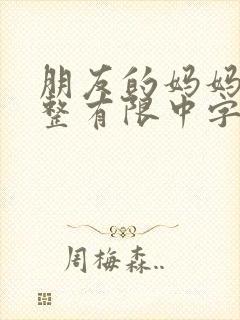 朋友的妈妈
整有限中字
周梅森..